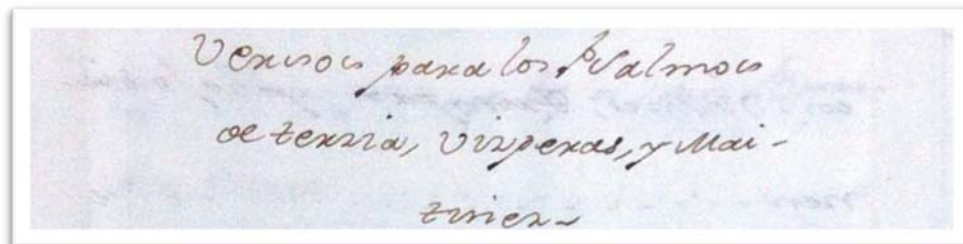 Versos para los Psalmos
de terzia, Visperas, y Mai-
tines